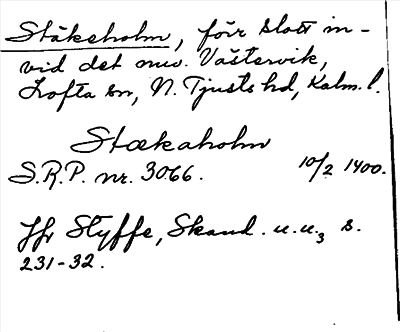 Stäkeholm, förr slott in-
vid det nuv. Västervik,
Lofta sn, N. Tjusts hd, Kalm. l.
Stækaholm
S.R.P. nr. 3066. 10/2 1400.
Jfr Styffe, Skand. u.u.3 s.
231-32.